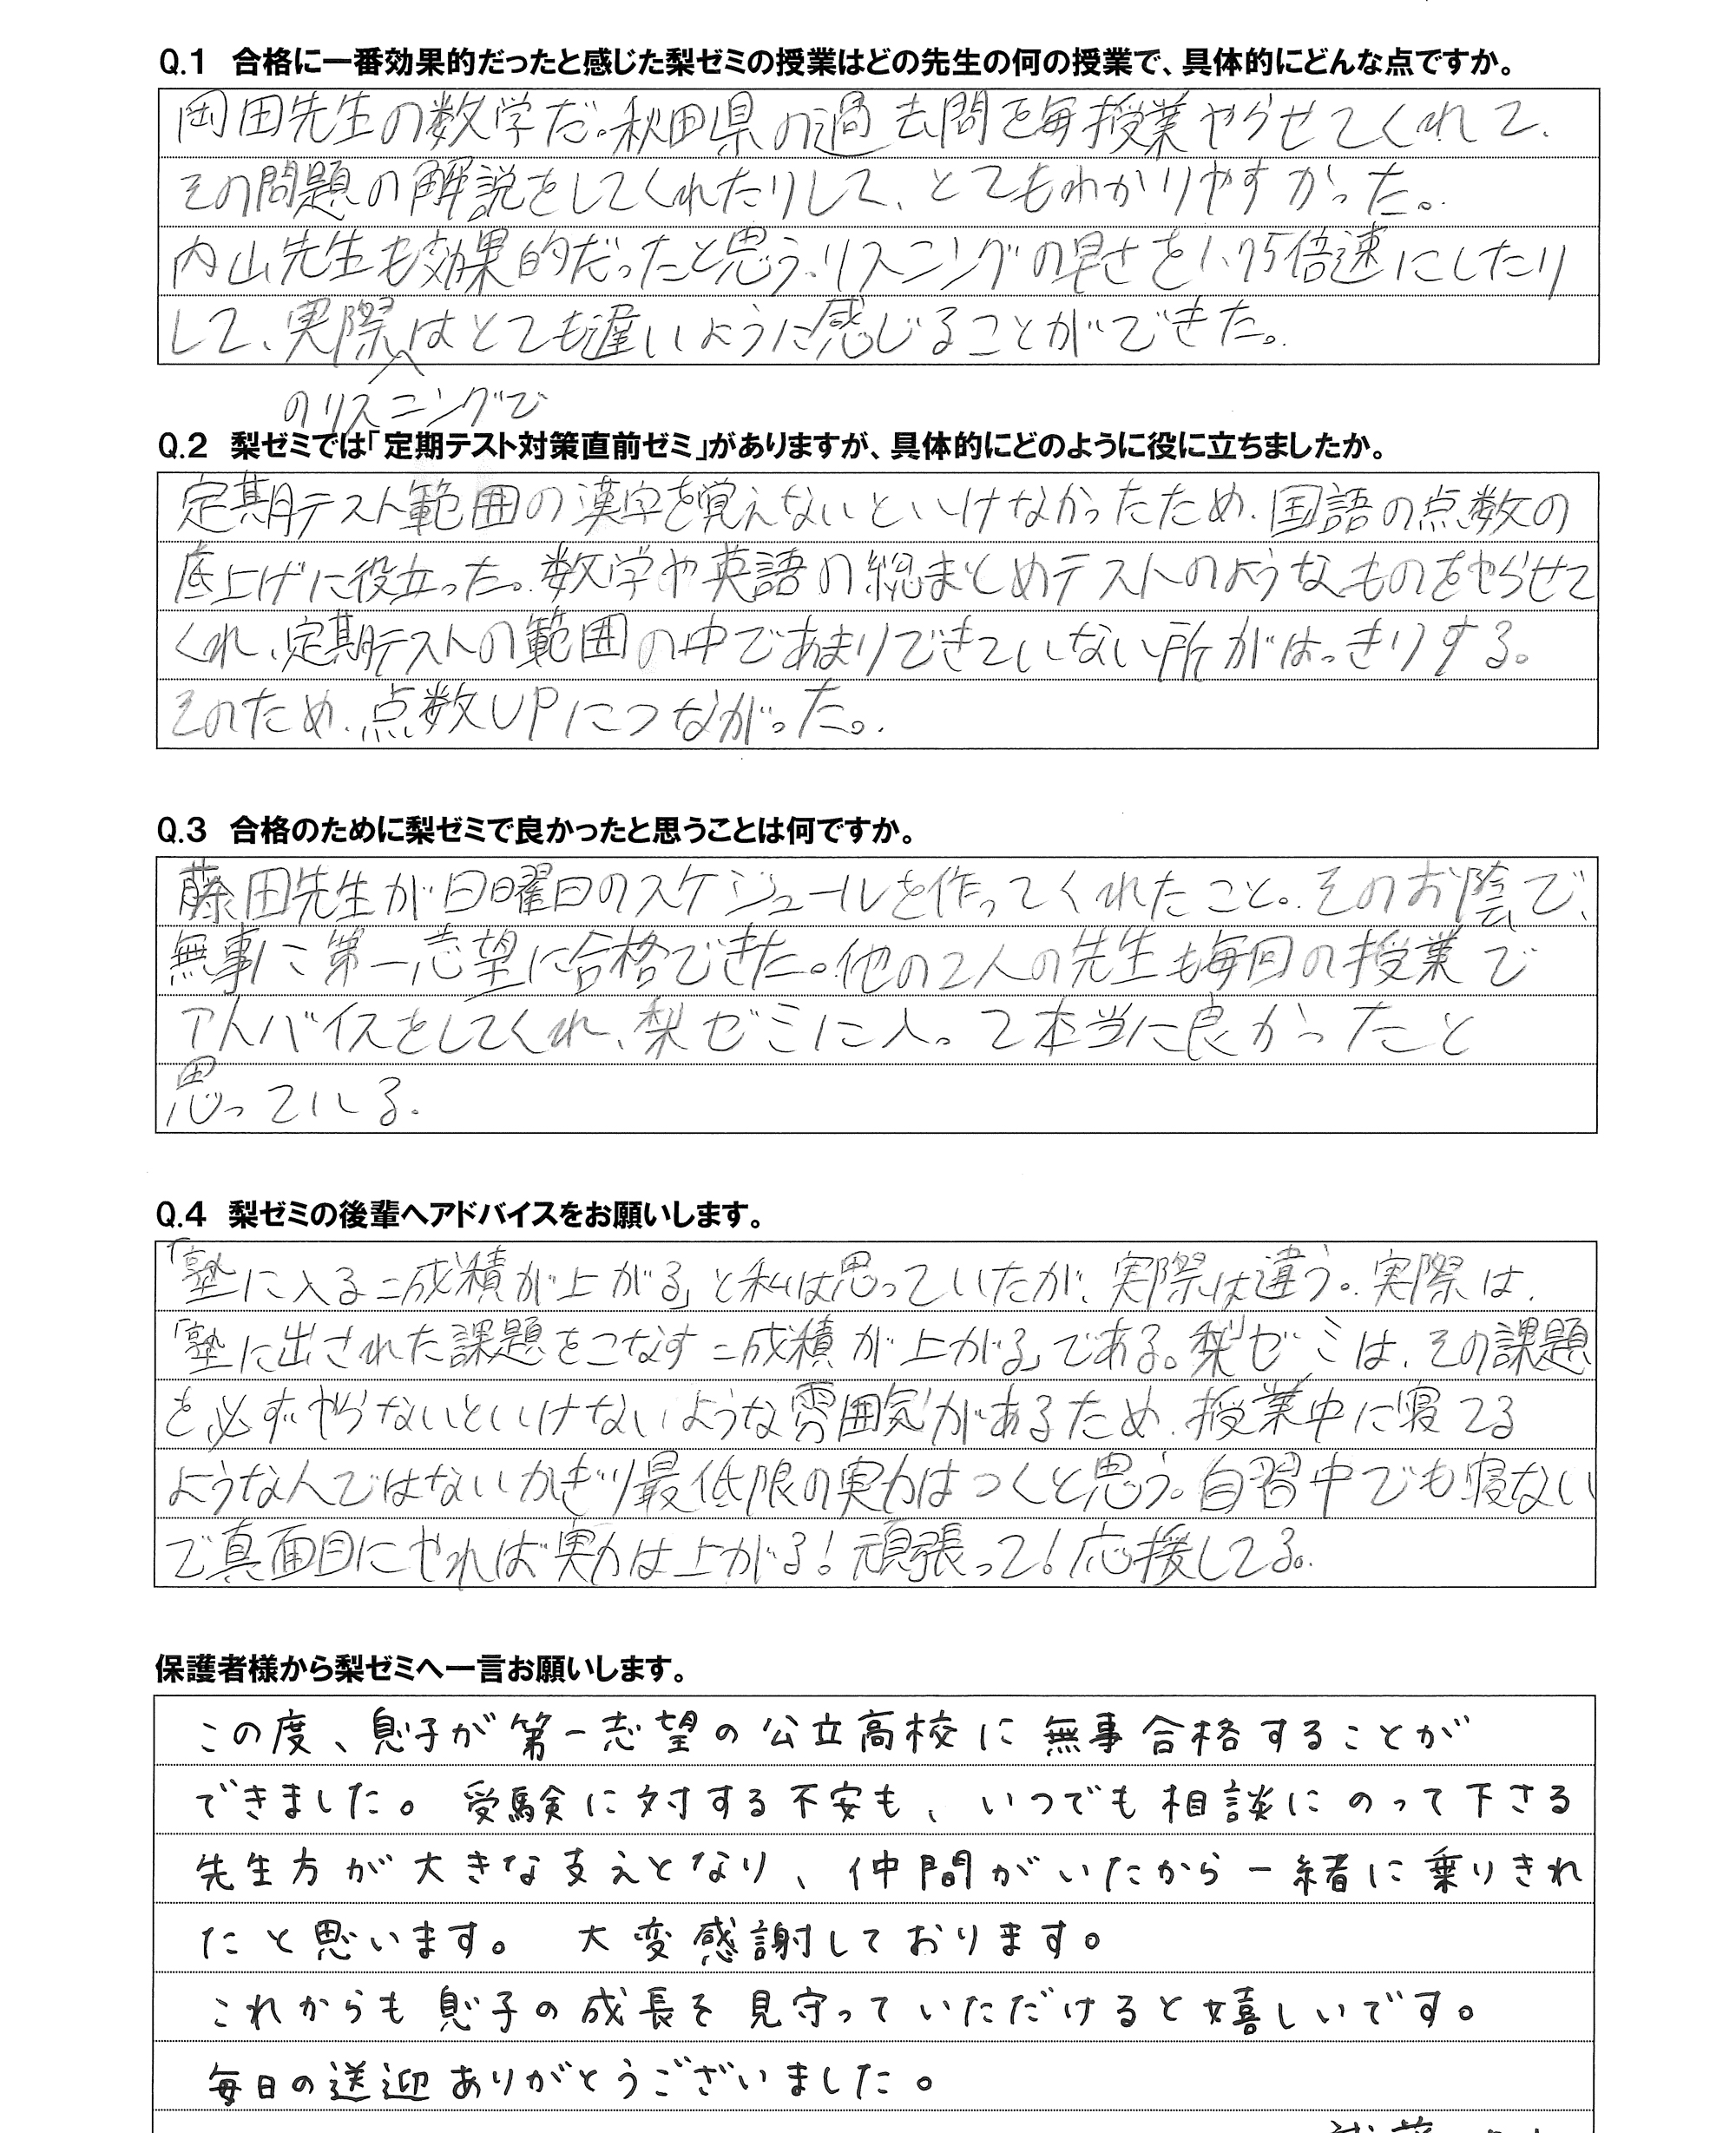 Q.1 合格に一番効果的だったと感じた梨ゼミの授業はどの先生の何の授業で、具体的にどんな点ですか。
岡田先生の数学だ。秋田県の過去問を毎授業やらせてくれて、
その問題の解説をしてくれたりして、とてもわかりやすかった。
内山先生も効果的だったと思う。リスニングの早さを1.75倍速にしたり
して、実際はとても遅いように感じることができた。
のリスニングで
Q.2 梨ゼミでは「定期テスト対策直前ゼミ」がありますが、具体的にどのように役に立ちましたか。
定期テスト範囲の漢字を覚えないといけなかったため、国語の点数の
底上げに役立った。数学や英語の総まとめテストのようなものをやらせて
くれ、定期テストの範囲の中であまりできていない所がはっきりする。
そのため、点数UPにつながった。
Q.3 合格のために梨ゼミで良かったと思うことは何ですか。
藤田先生が日曜日のスケジュールを作ってくれたこと。そのお陰で、
無事に第一志望に合格できた。他の2人の先生も毎回の授業で
アドバイスをしてくれ、梨ゼミに入って本当に良かったと
思っている。
Q.4 梨ゼミの後輩へアドバイスをお願いします。
「塾に入る=成積が上がる」と私は思っていたが、実際は違う。実際は、
「塾に出された課題をこなす=成積が上がる」である。梨ゼミは、その課題
を必ずやらないといけないような雰囲気があるため、授業中に寝てる
ような人ではないかぎり最低限の実力はつくと思う。自習中でも寝ない
で真面目にやれば実力は上がる!頑張って!応援してる。
保護者様から梨ゼミへ一言お願いします。
この度、息子が第一志望の公立高校に無事合格することが
できました。受験に対する不安も、いつでも相談にのって下さる
先生方が大きな支えとなり、仲間がいたから一緒に乗りきれ
たと思います。大変感謝しております。
これからも息子の成長を見守っていただけると嬉しいです。
毎日の送迎ありがとうございました。